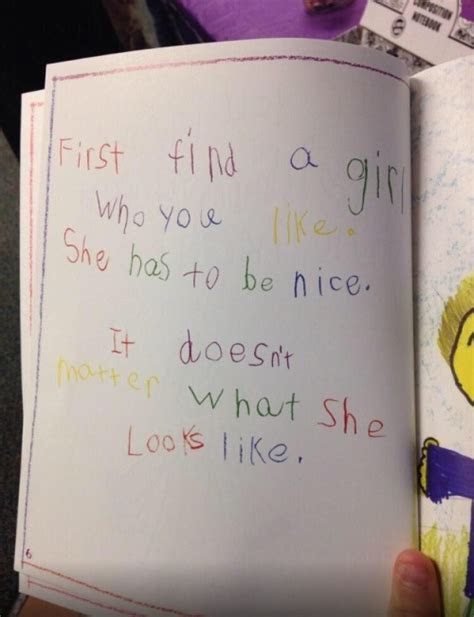 COMPOSITION
NOTEBOOK
First find a girl
who you like.
She has to be nice.
It doesn't
matter what she
Looks like.
6